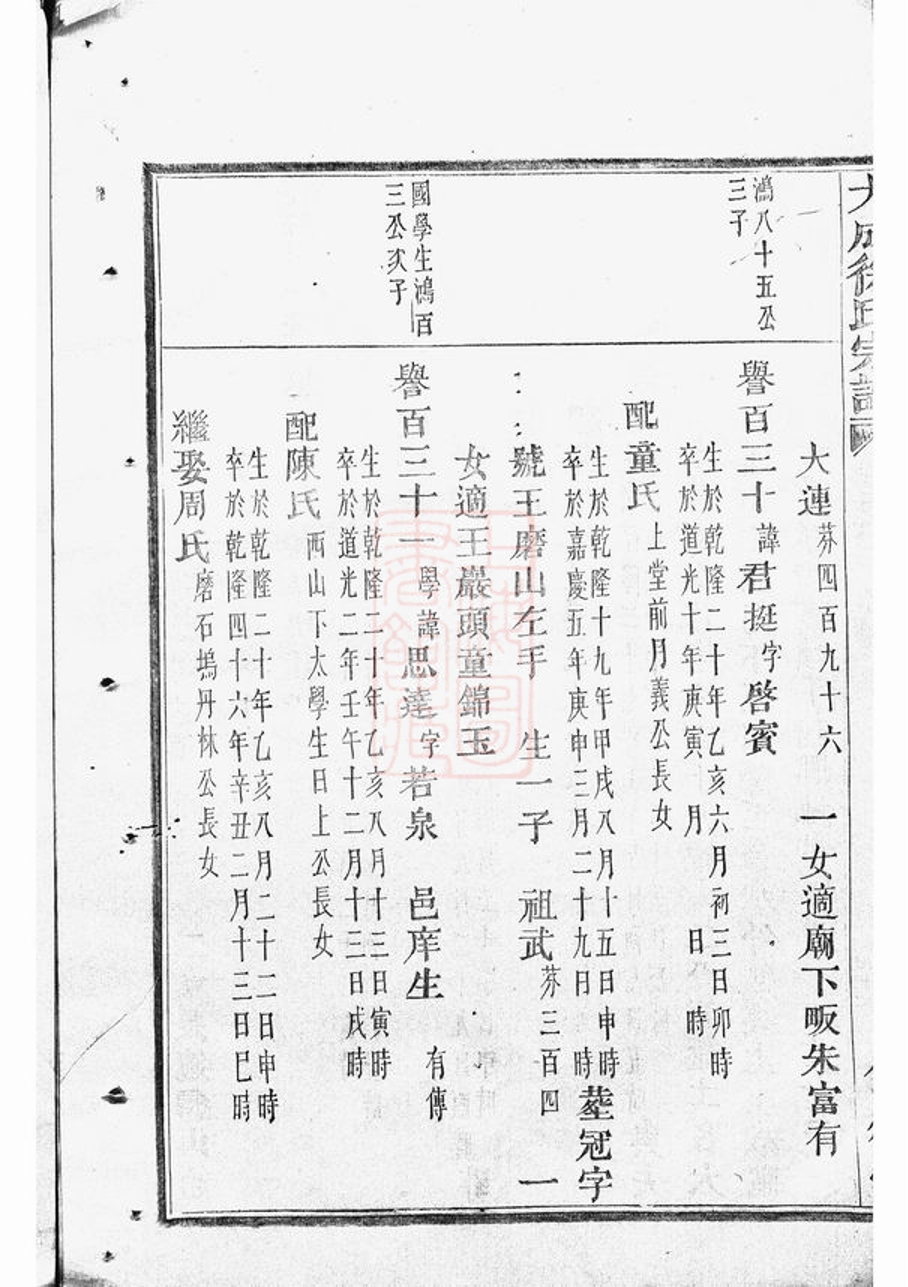 大成徐氏宗譜
鴻八十五公
三子
國學生鴻百
三公次子
大連芬四百九十六 一女適廟下畈朱富有
譽百三十諱君挺字啓賓
生於乾隆二十年乙亥六月初三日卯時
卒於道光十年庚寅 月 日 時
配童氏上堂前月義公長女
生於乾隆十九年甲戌八月十五日申時
卒於嘉慶五年庚申三月二十九日 時
塟冠字
號王磨山左手 生一子 祖武芬三百四 一
女適王巖頭童錦玉
譽百三十一學諱思達字若泉 邑庠生 有傳
生於乾隆二十年乙亥八月十三日寅時
卒於道光二年壬午十二月十三日戌時
配陳氏西山下太學生日上公長女
生於乾隆二十年乙亥八月二十二日申時
卒於乾隆四十六年辛丑二月十三日巳時
繼娶周氏磨石塢丹林公長女